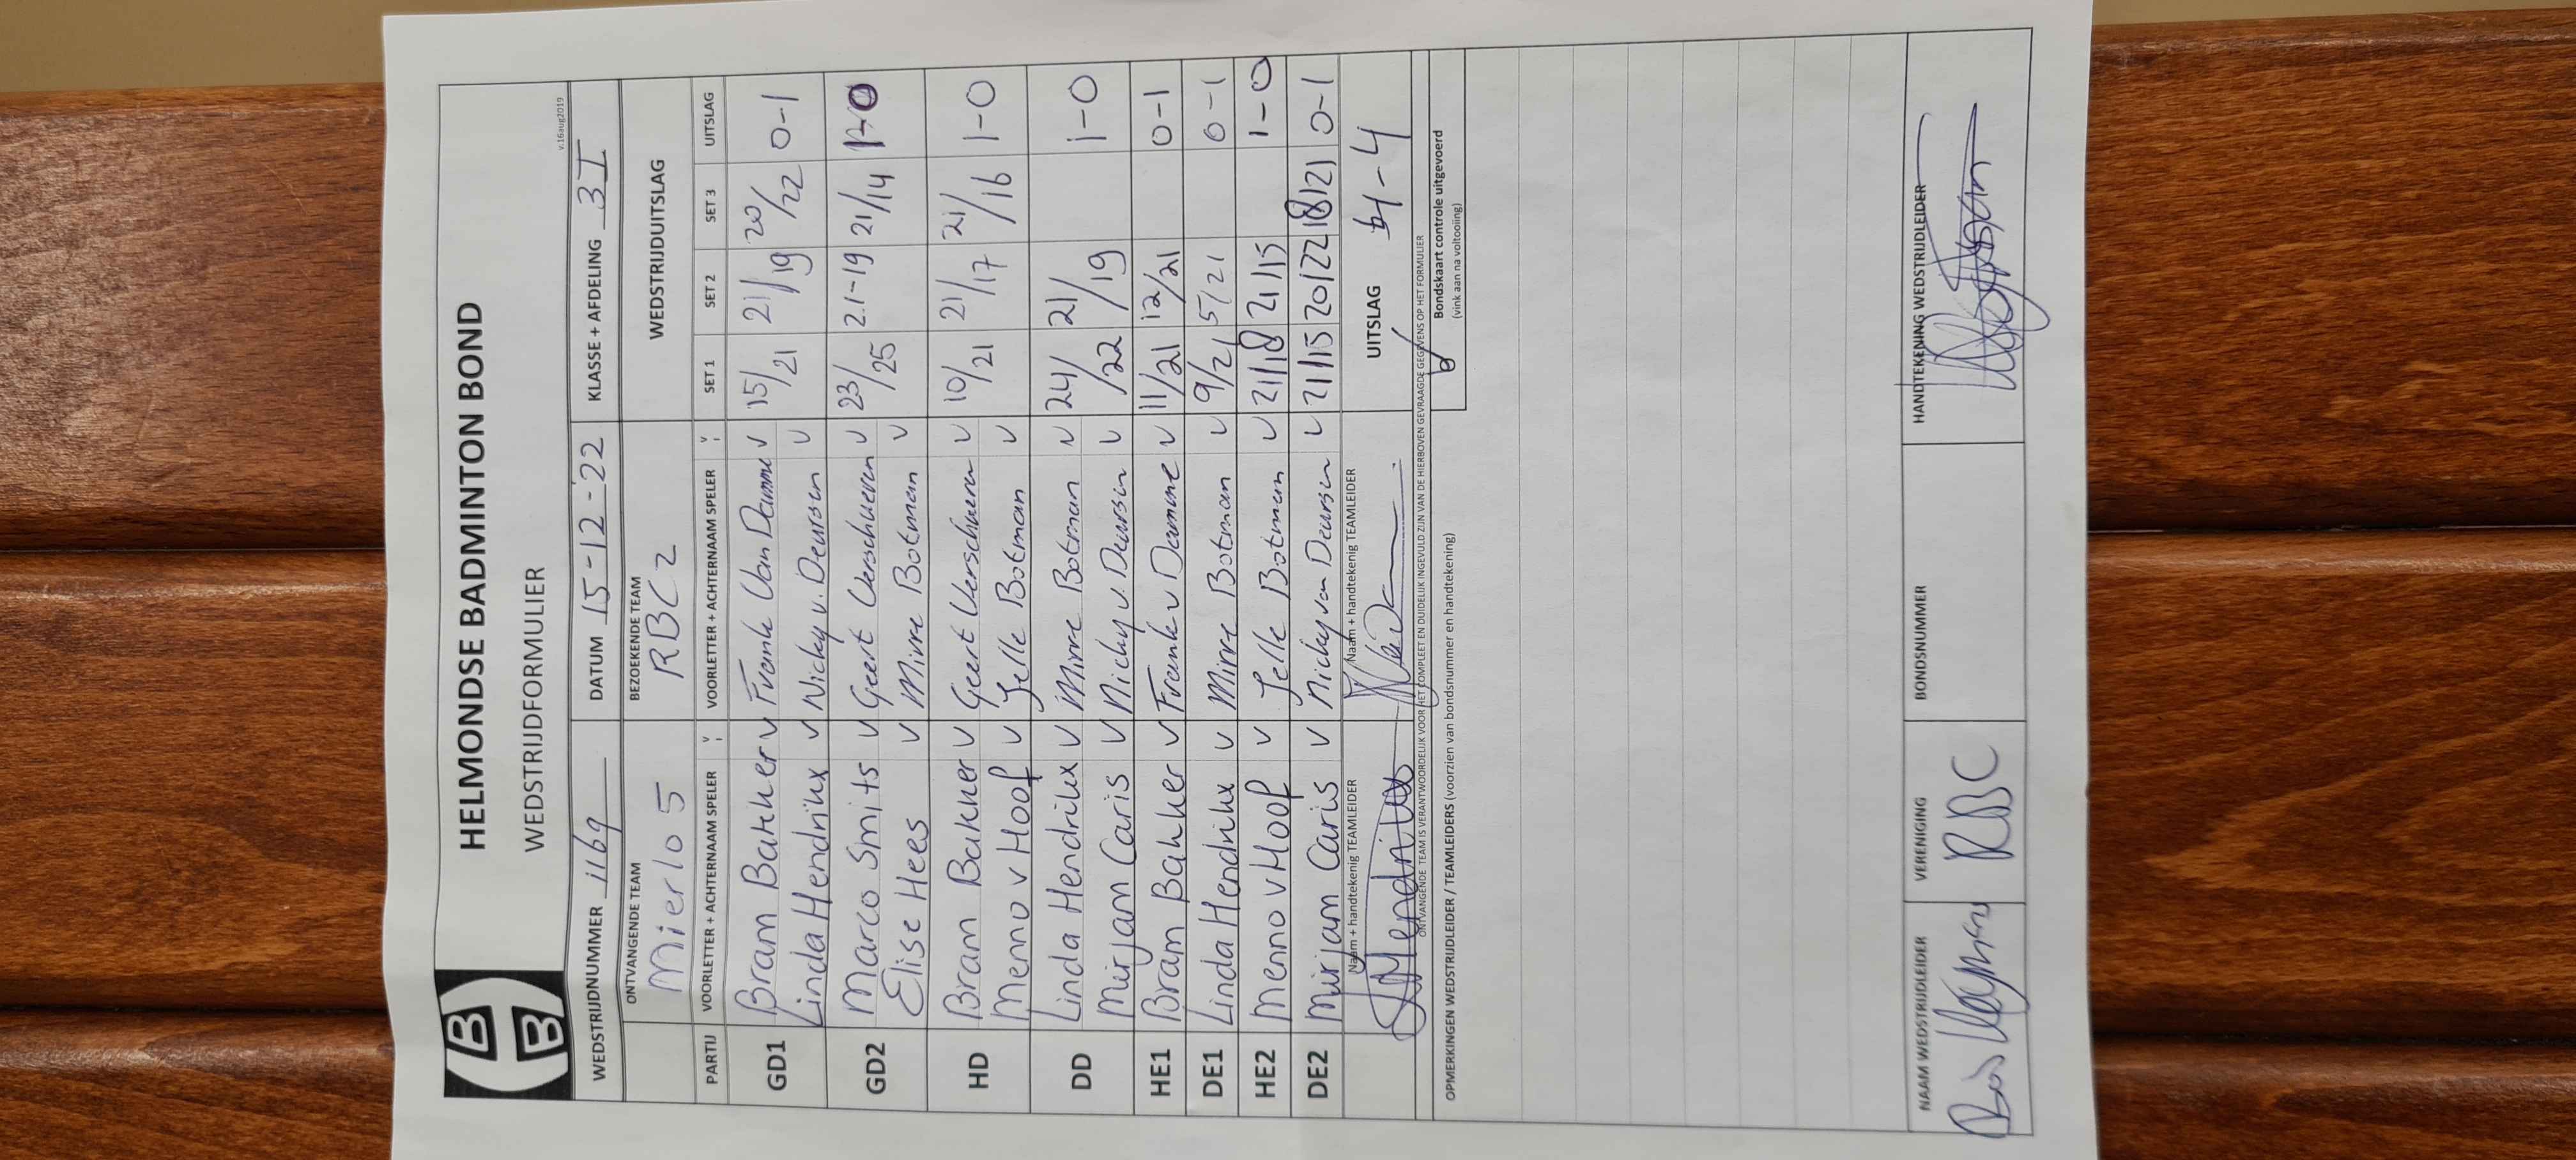 BB
HELMONDSE BADMINTON BOND
WEDSTRIJDFORMULIER
v.16aug2019
WEDSTRIJDNUMMER 1169 DATUM 15-12-22 KLASSE + AFDELING 3I
ONTVANGENDE TEAM BEZOEKENDE TEAM WEDSTRIJDUITSLAG
Mierlo 5 RBC 2
PARTIJ VOORLETTER + ACHTERNAAM SPELER V VOORLETTER + ACHTERNAAM SPELER V SET 1 SET 2 SET 3 UITSLAG
GD1 Bram Bakker v Frank Van Damme v 15/21 21/19 20/22 0-1
Linda Hendrikx v Nicky v. Deursen v
GD2 Marco Smits v Geert Verschueren v 23/25 21-19 21/14 1-0
Elise Hees v Mirre Botman v
HD Bram Bakker v Geert Verschueren v 10/21 21/17 21/16 1-0
Menno v Hoof v Jelle Botman v
DD Linda Hendrikx v Mirre Botman v 24/22 21/19 1-0
Mirjam Caris v Nicky v. Deursen v
HE1 Bram Bakker v Frank v Damme v 11/21 12/21 0-1
DE1 Linda Hendrikx v Mirre Botman v 9/21 5/21 0-1
HE2 Menno v Hoof v Jelle Botman v 21/18 21/15 1-0
DE2 Mirjam Caris v Nicky van Deursen v 21/15 20/22 18/21 0-1
Naam + handtekenig TEAMLEIDER Naam + handtekenig TEAMLEIDER UITSLAG 4-4
ONTVANGENDE TEAM IS VERANTWOORDELIJK VOOR HET COMPLEET EN DUIDELIJK INGEVULD ZIJN VAN DE HIERBOVEN GEVRAAGDE GEGEVENS OP HET FORMULIER
Bondskaart controle uitgevoerd
(vink aan na voltooiing)
OPMERKINGEN WEDSTRIJDLEIDER / TEAMLEIDERS (voorzien van bondsnummer en handtekening)
NAAM WEDSTRIJDLEIDER VERENIGING BONDSNUMMER HANDTEKENING WEDSTRIJDLEIDER
RBC